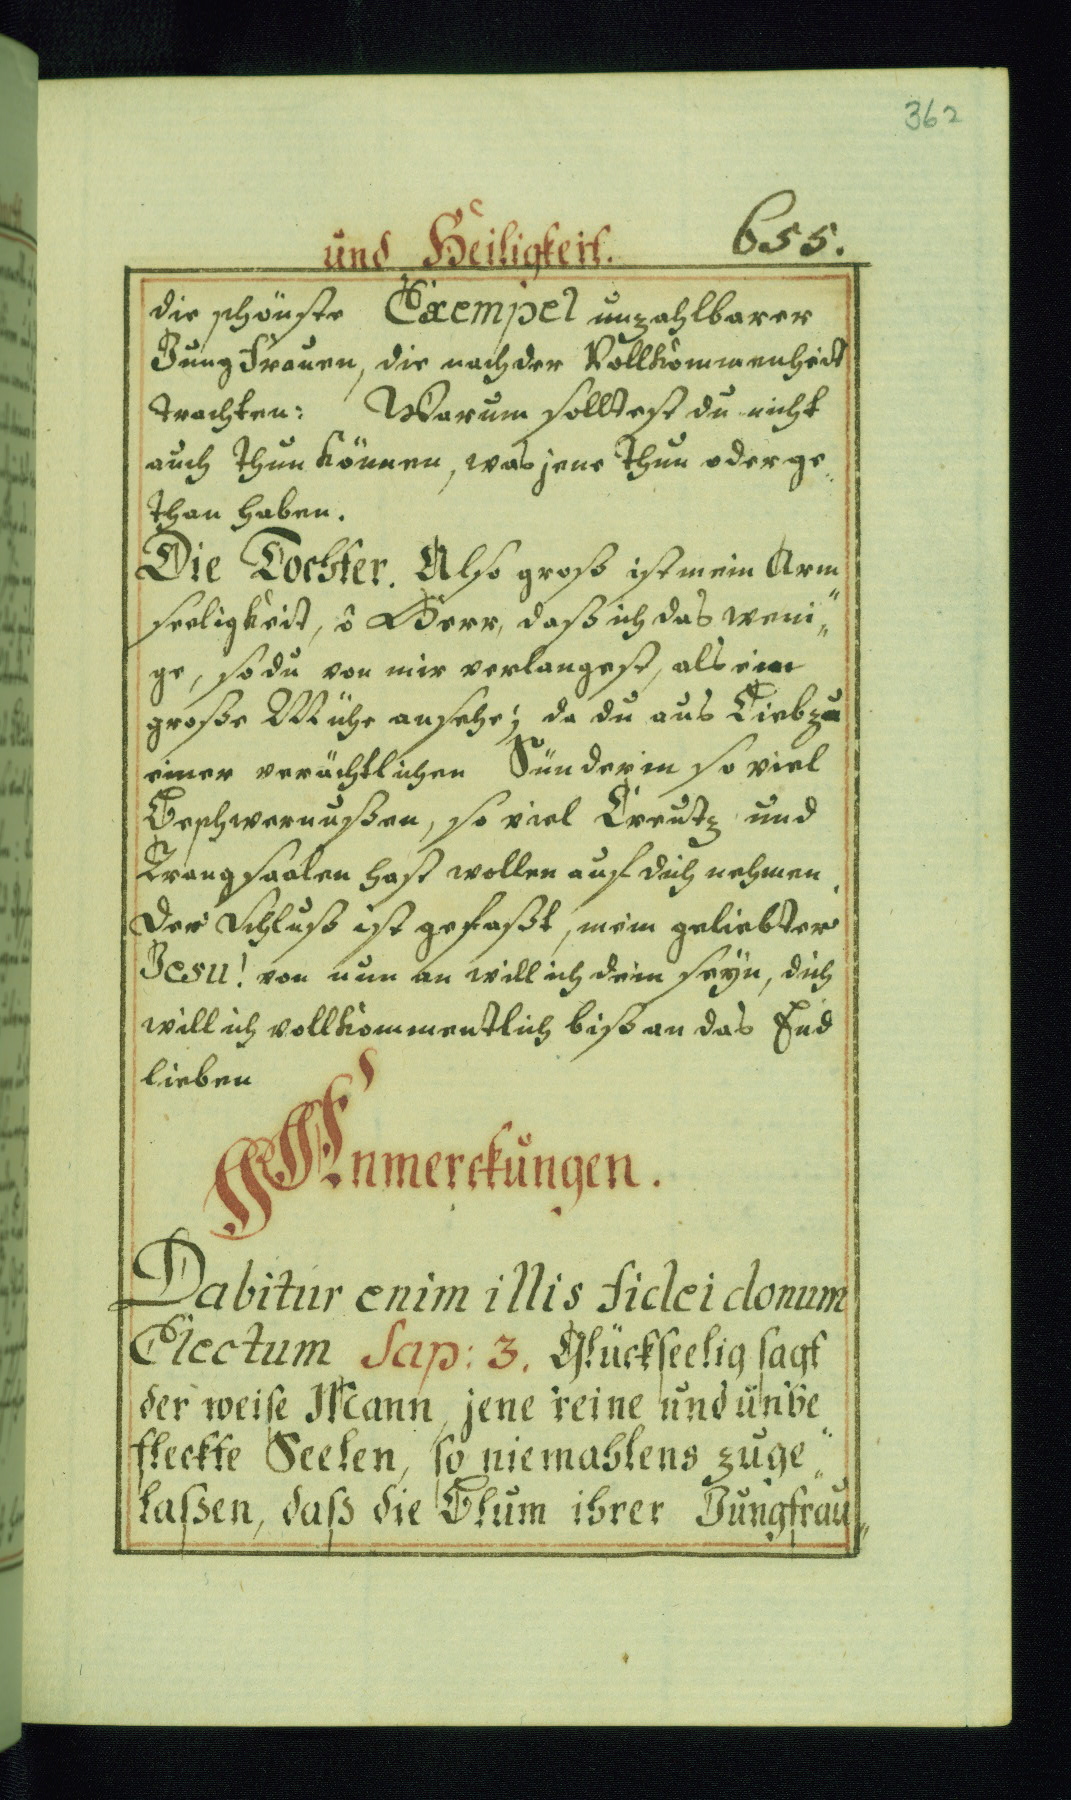 362
und Heiligkeit. 655.
die schönste Exempel unzahlbarer
Jungfrauen, die nach der Vollkommenheit
trachten: Warum solltest du nicht
auch thun können, was jene thun oder ge
than haben.
Die Tochter. Also groß ist mein Arm
seeligkeit, ô Herr, daß ich das weni„
ge, so du von mir verlangest, als ein
große Mühe ansehe; da du aus Lieb zu
einer verächtlichen Sünderin so viel
Beschwernußen, so viel Creutz und
Trangsaalen hast wollen auf dich nehmen.
Der Schluß ist gefaßt, mein geliebter
Jesu! von nun an will ich dein seÿn, dich
will ich vollkommentlich biß an das End
lieben
Anmerckungen.
Dabitur enim illis fidei donum
Electum Sap: 3. Glückseelig sagt
der weise Mann, jene reine und unbe
fleckte Seelen, so niemahlens zuge„
laßen, daß die Blum ihrer Jungfrau„